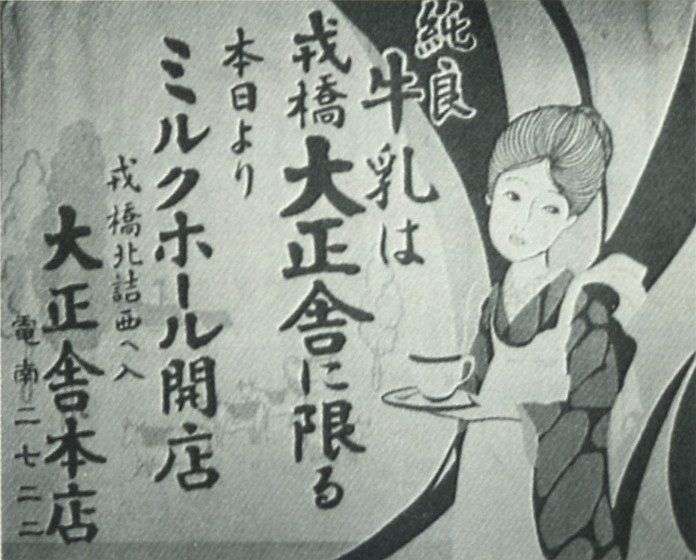 純良
牛乳は
戎橋大正舎に限る
本日より
ミルクホール開店
戎橋北詰西へ入
大正舎本店
電南二七二二